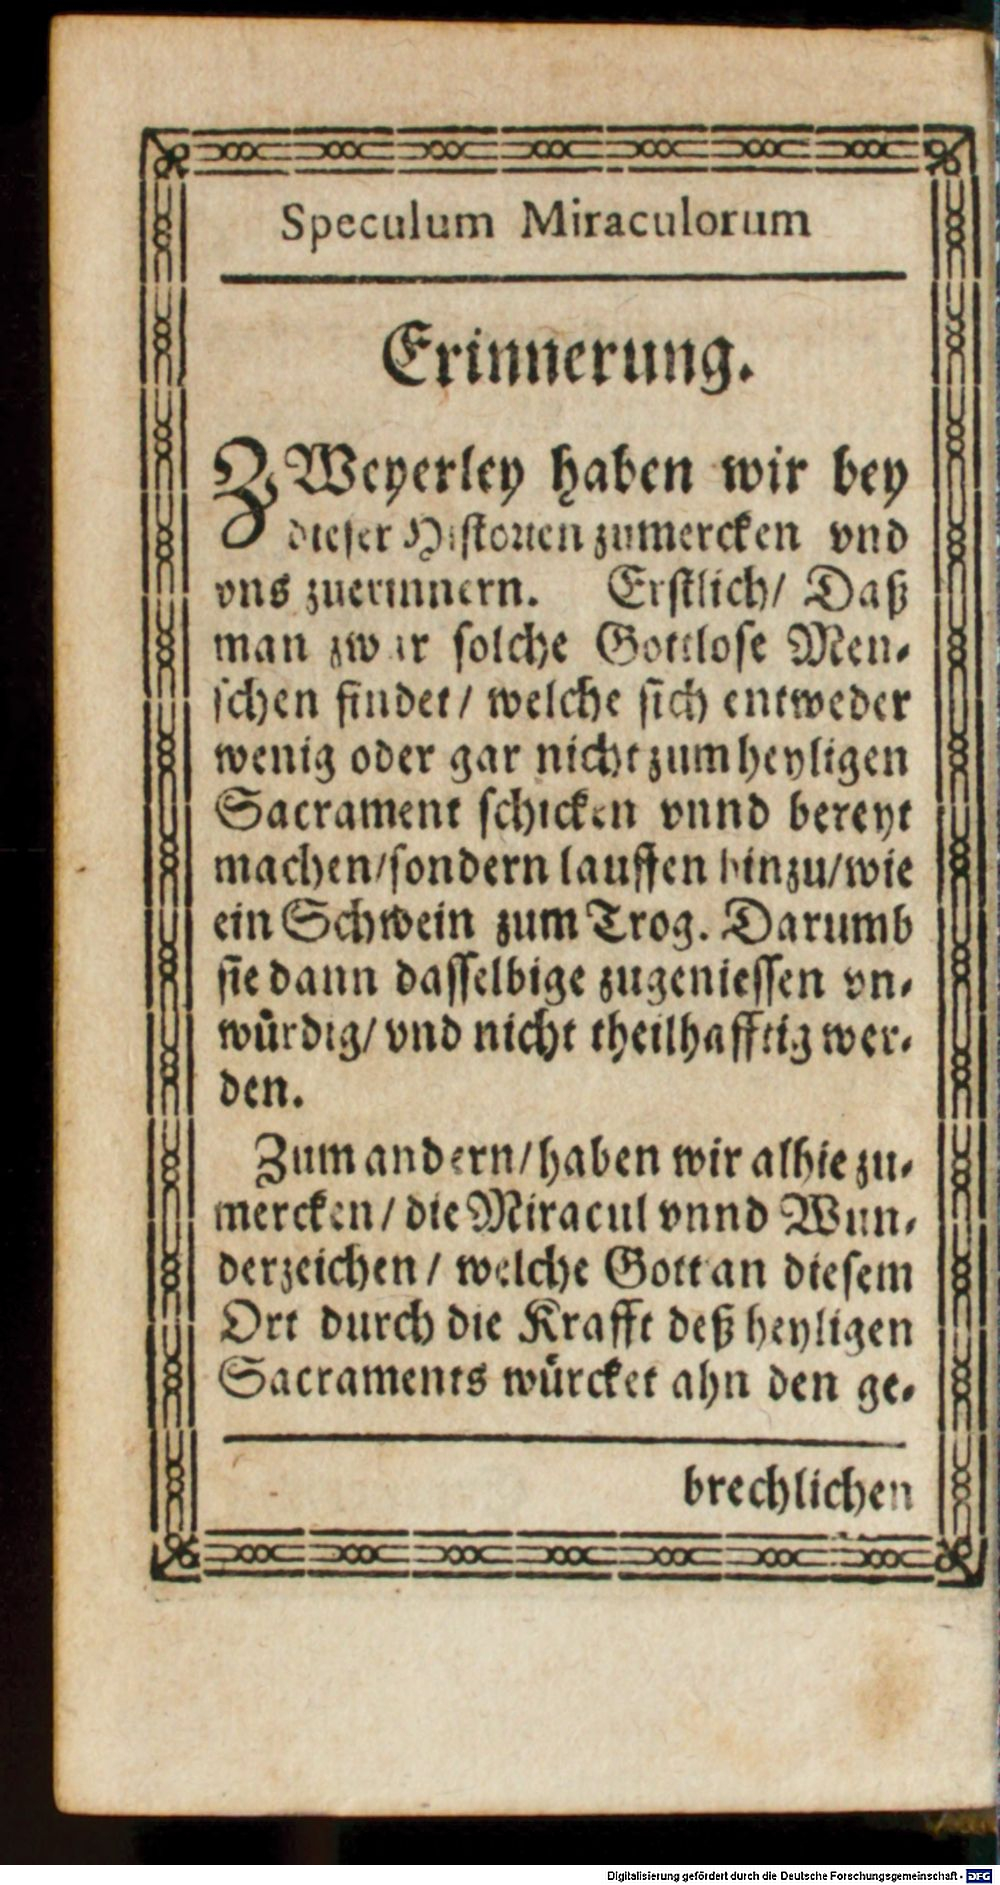 Speculum Miraculorum
Erinnerung.
ZWeyerley haben wir bey
dieser Historien zumercken vnd
vns zuerinnern. Erstlich/ Daß
man zwar solche Gottlose Men-
schen findet/ welche sich entweder
wenig oder gar nicht zum heyligen
Sacrament schicken vnnd bereyt
machen/sondern lauffen hinzu/wie
ein Schwein zum Trog. Darumb
sie dann dasselbige zugeniessen vn-
würdig/ vnd nicht theilhafftig wer-
den.
Zum andern/haben wir alhie zu-
mercken/ die Miracul vnnd Wun-
derzeichen/ welche Gott an diesem
Ort durch die Krafft deß heyligen
Sacraments würcket ahn den ge-
brechlichen
Digitalisierung gefördert durch die Deutsche Forschungsgemeinschaft - DFG